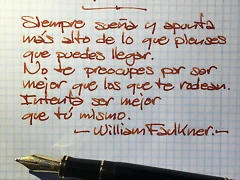 Siempre sueña y apunta
más alto de lo que pienses
que puedes llegar.
No te preocupes por ser
mejor que los que te rodean.
Intenta ser mejor
que tú mismo.
— William Faulkner. —